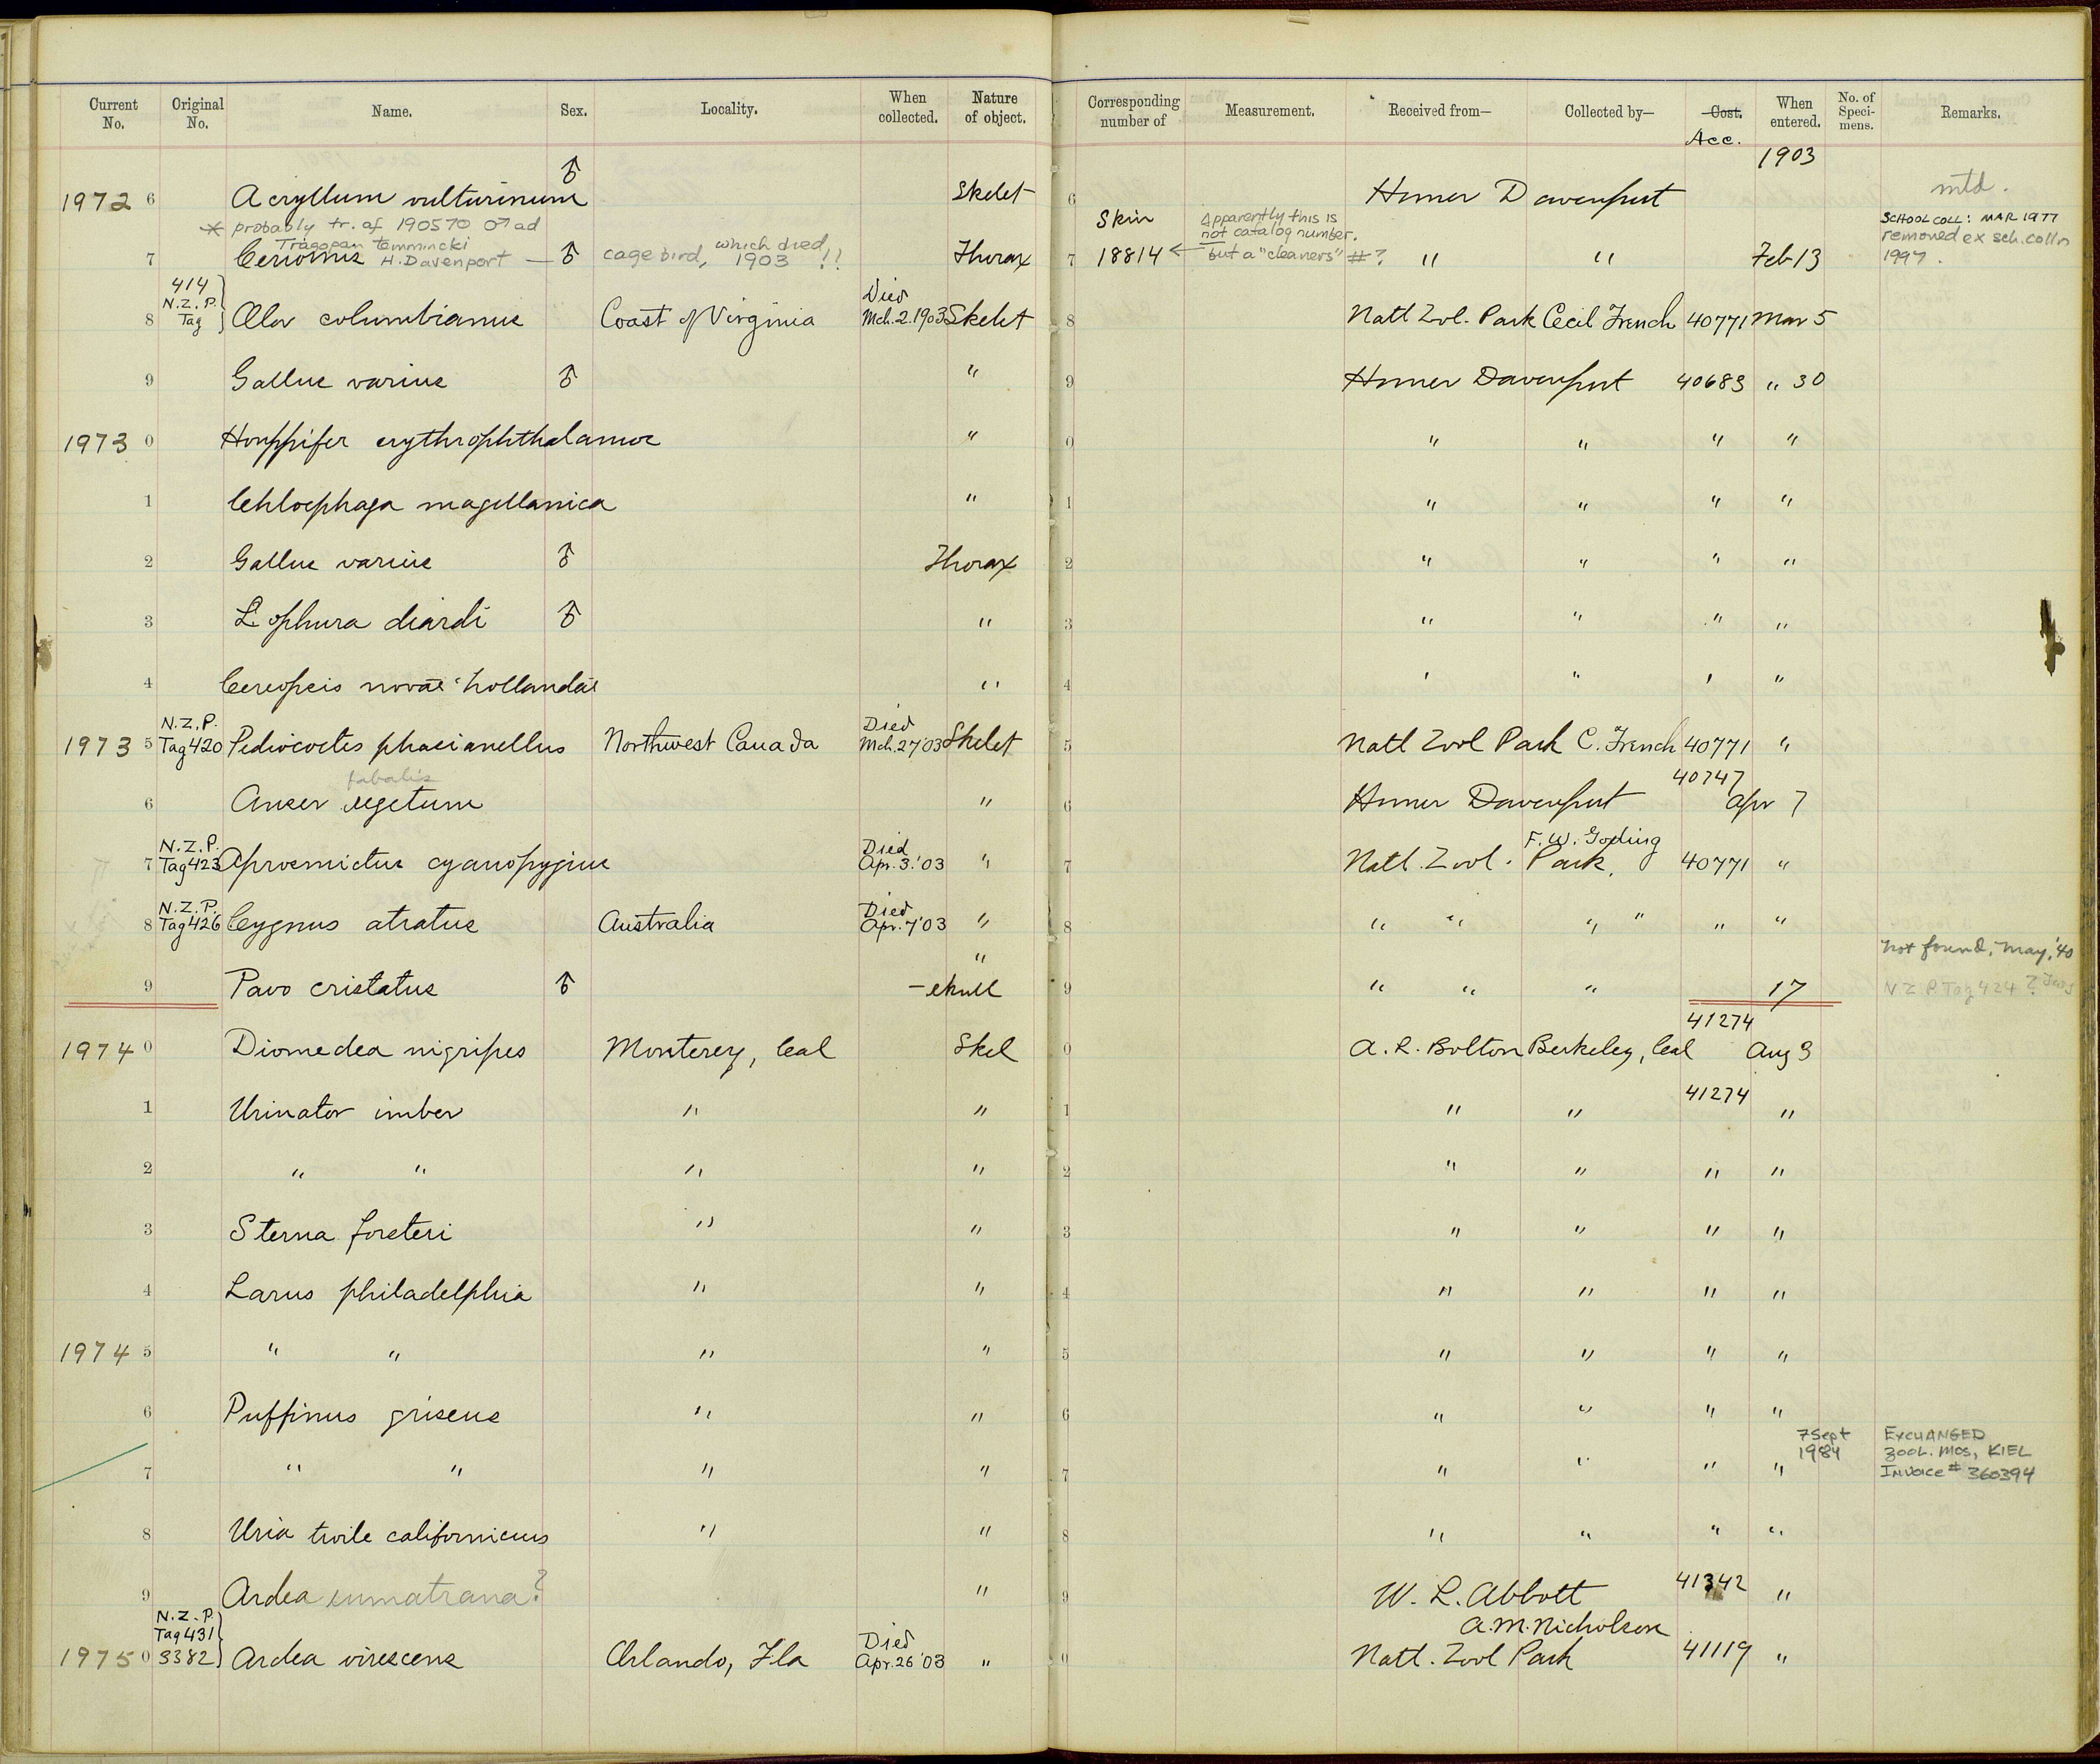 Current No. Original No. Name. Sex. Locality. When collected. Nature of object. Corresponding number of Measurement. Received from— Collected by— Cost. Acc. When entered. No. of Speci-mens. Remarks.
1903
1972 6 Acryllum vulturinum ♂ Skelet 6 Homer Davenport mtd.
* probably tr. of 190570 ♂ ad
Tragopan temmincki
7 Ceriornis H. Davenport — ♂ cage bird, which died 1903 !! Thorax 7 Skin 18814 ← Apparently this is not catalog number. but a "cleaners" #? " " Feb 13 SCHOOL COLL: MAR 1977 removed ex sch. colln 1997.
8 414 N.Z.P. Tag } Olor columbianus Coast of Virginia Died Mch. 2. 1903 Skelet 8 Natl Zol. Park Cecil French 40771 Mar 5
9 Gallus varius ♂ " 9 Homer Davenport 40683 " 30
1973 0 Houppifer erythrophthalamus " 0 " " " "
1 Chloephaga magellanica " 1 " " " "
2 Gallus varius ♂ Thorax 2 " " " "
3 Lophura diardi ♂ " 3 " " " "
4 Cereopsis novae hollandae " 4 ' " ' "
1973 5 N.Z.P. Tag 420 Pediocoetes phasianellus Northwest Canada Died Mch. 27 '03 Skelet 5 Natl Zool Park C. French 40771 "
fabalis
6 Anser segetum " 6 Homer Davenport 40747 Apr 7
7 N.Z.P. Tag 423 Aprosmictus cyanopygius Died Apr. 3. '03 " 7 Natl. Zool. Park. F. W. Goding 40771 "
8 N.Z.P. Tag 426 Cygnus atratus Australia Died Apr. 7 '03 " 8 " " " " " "
9 Pavo cristatus ♂ " — skull 9 " " " 17 Not found, May, '40 N Z P. Tag 424 ?
1974 0 Diomedea nigripes Monterey, Cal Skel 0 A. R. Bolton Berkeley, Cal 41274 Aug 3
1 Urinator imber " " 1 " " 41274 "
2 " " " " 2 " " " "
3 Sterna forsteri " " 3 " " " "
4 Larus philadelphia " " 4 " " " "
1974 5 " " " " 5 " " " "
6 Puffinus griseus " " 6 " " " "
7 " " " " 7 " " " " 7 Sept 1984 EXCHANGED ZOOL. MUS, KIEL INVOICE # 360394
8 Uria troile californicus " " 8 " " " "
9 Ardea sumatrana? " 9 W. L. Abbott 41342 "
1975 0 N.Z.P. Tag 431 3382 } Ardea virescens Orlando, Fla Died Apr. 26 '03 " 0 A. M. Nicholson Natl. Zool Park 41119 "